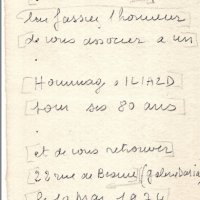 [l'honneur]
[de vous associer à un]
[Hommage, ILIAZD
[pour ses 80 ans
[et de vous retrouver
[22 rue de Beaune] (galerie
[le Mai 1974